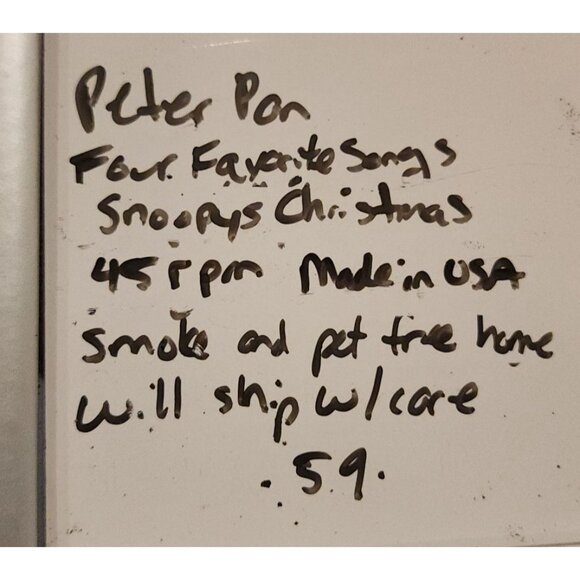 Peter Pan
Four Favorite Songs
Snoopys Christmas
45 rpm Made in USA
smoke and pet free home
will ship w/care
.59.